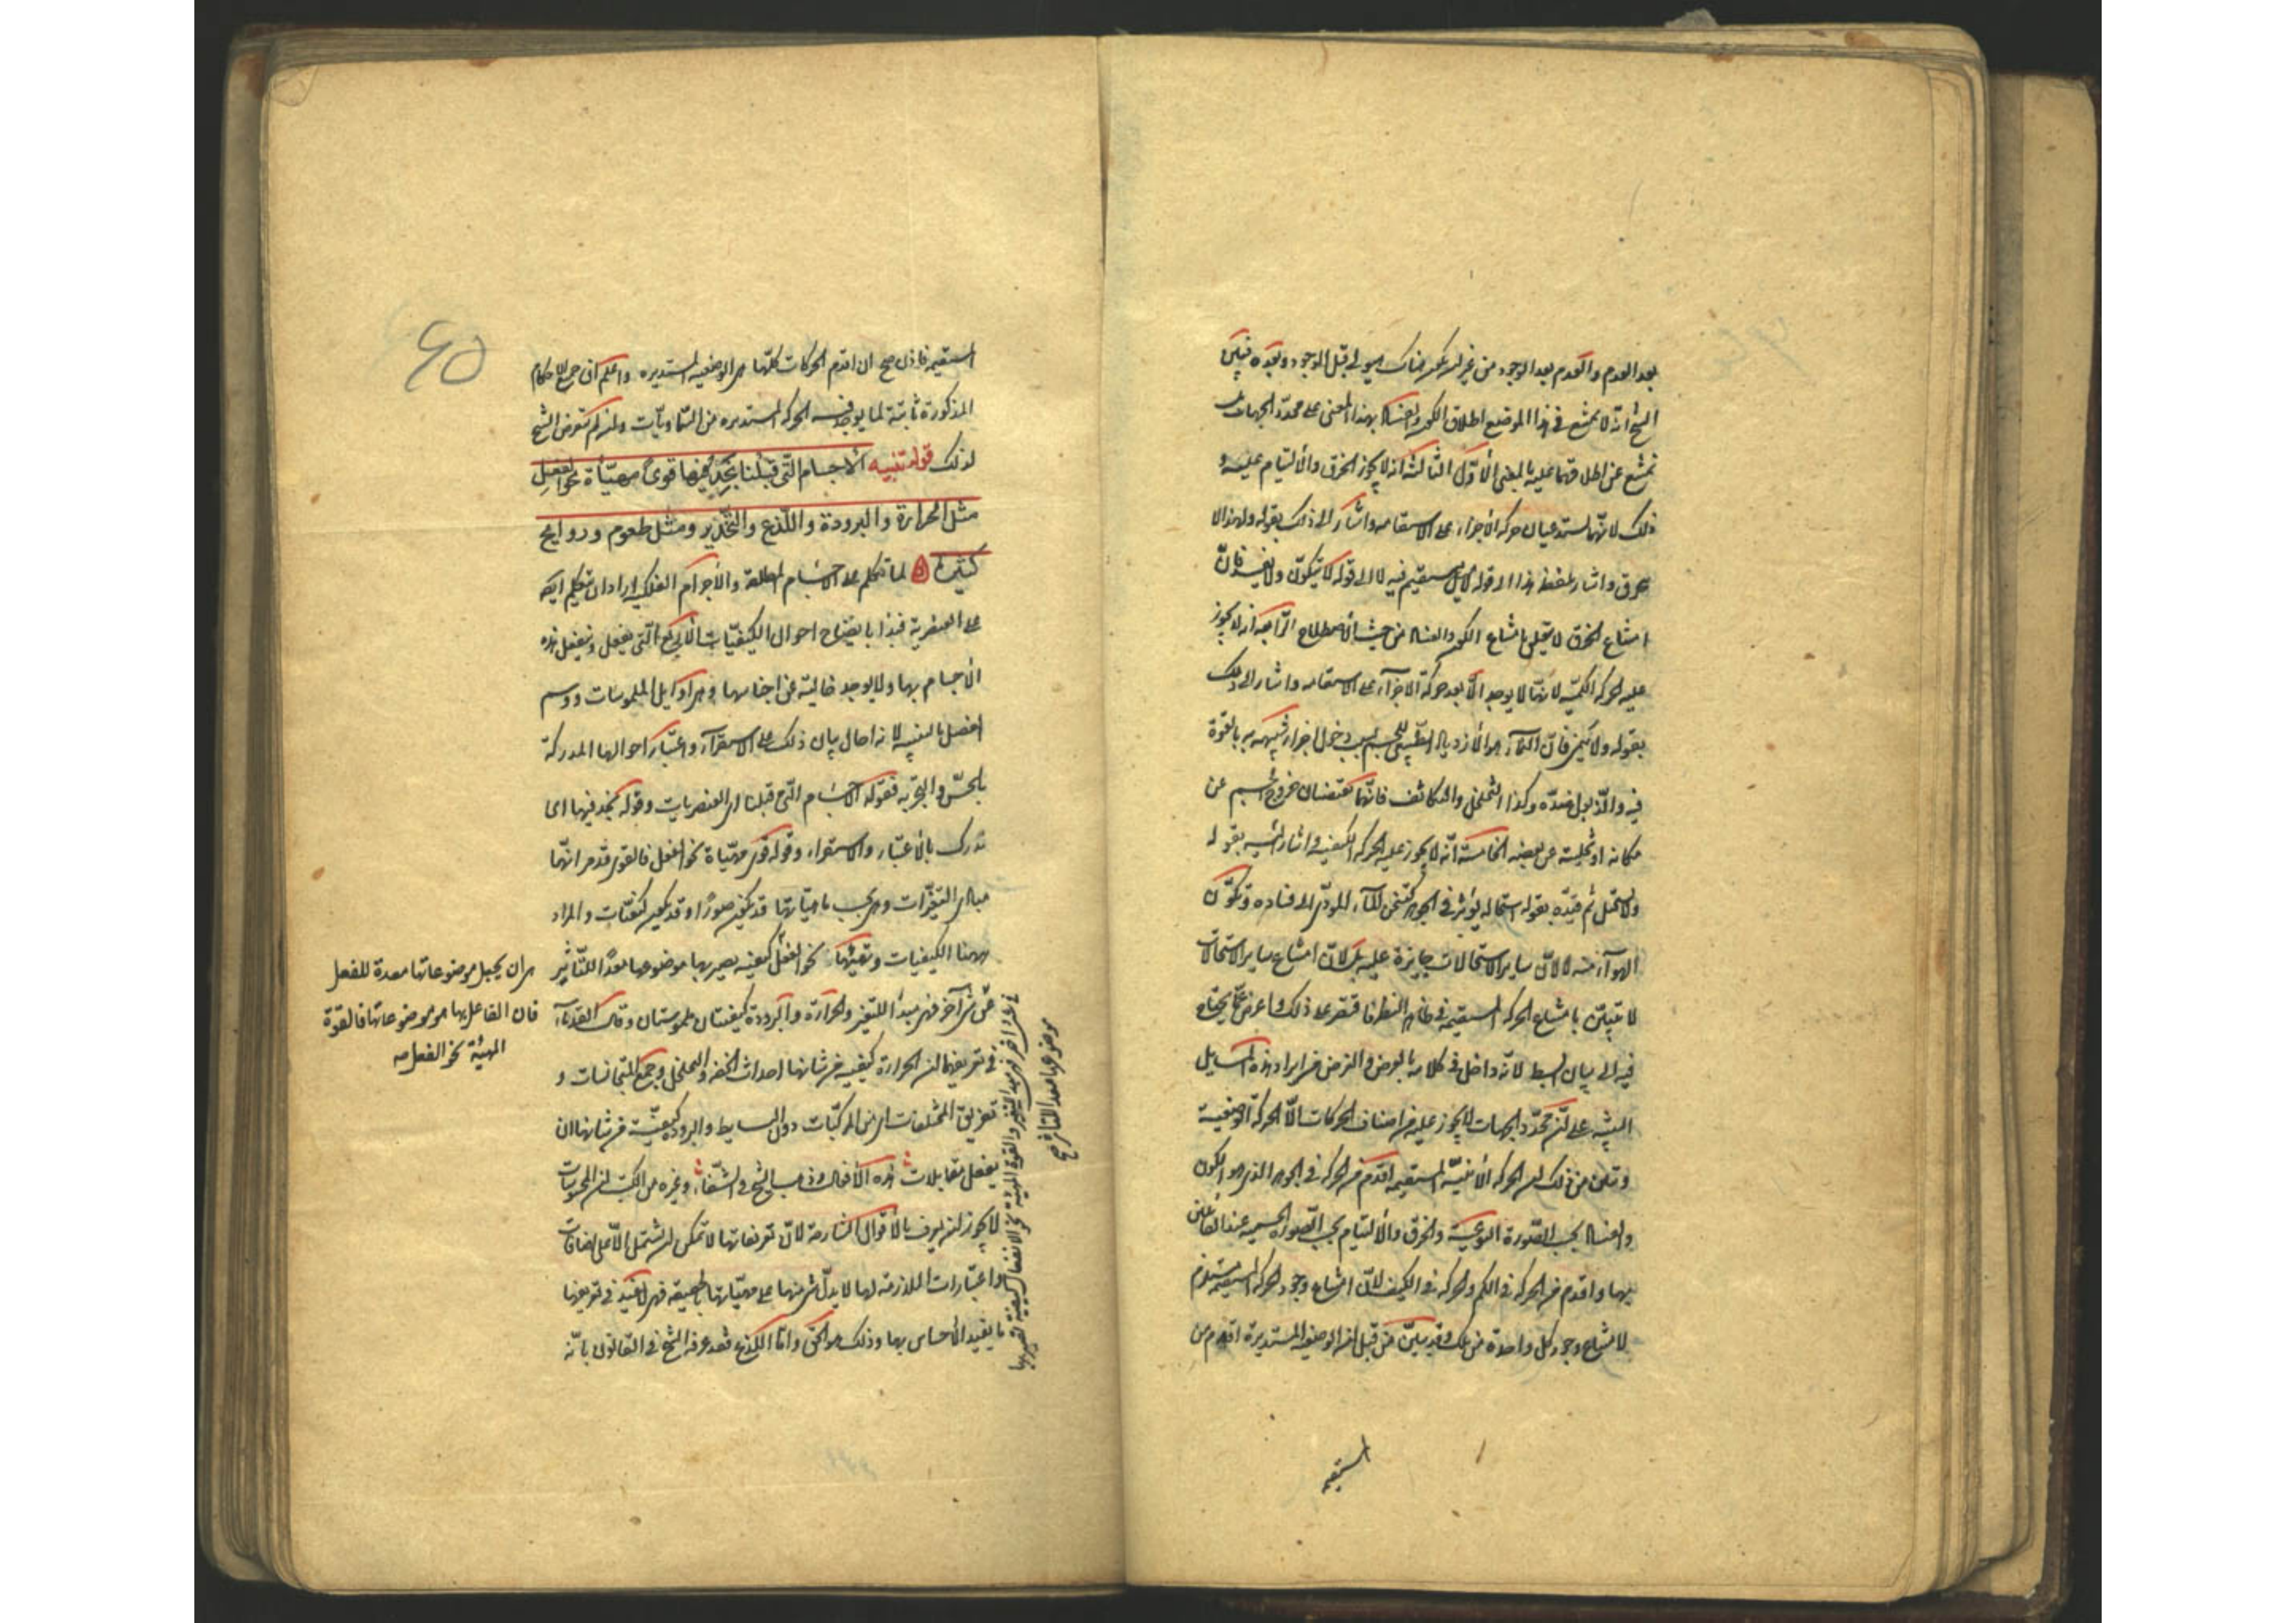 بعد العدم والعدم بعد الوجود من غير ان يكون هناك هيولى قبل الوجود وبعده فبين
الشيخ انه لا يمتنع في هذا الموضع اطلاق الكون والفساد بهذا المعنى على محدد الجهات بل
يمتنع عن اطلاقهما عليه بالمعنى الأول الثالثة انه لا يجوز الخرق والالتيام عليه و
ذلك لانهما يستدعيان حركة الاجزاء على الاستقامة واشار الى ذلك بقوله ولهذا لا
ينخرق واشار بلفظ هذا الى قوله لا ميل مستقيم فيه لا الى قوله لا يتكون ولا يفسد فان
امتناع الخرق لا يتعلق بامتناع الكون والفساد من حيث الاصطلاح الرابعة انه لا يجوز
عليه الحركة الكمية لانها لا يوجد الا بعد حركة الاجزاء على الاستقامة واشار الى ذلك
بقوله ولا ينمي فان النماء هو الازدياد الطبيعي للجسم بسبب دخول اجزاء شبيهة به بالقوة
فيه والذبول ضده وكذا التخلخل والتكاثف فانهما يقتضيان خروج الجسم عن
مكانه او تخليته عن بعضه الخامسة انه لا يجوز عليه الحركة الكيفية واشار اليه بقوله
ولا يستحيل ثم قيده بقوله استحالة يؤثر في الجوهر كتسخن الماء المؤدي الى فساده وتكون
الهواء منه لا لان ساير الاستحالات جايزة عليه بل لان امتناع ساير الاستحالات
لا يتبين بامتناع الحركة المستقيمة في ظاهر النظر فاقتصر على ذلك واعرض عما يحتاج
فيه الى بيان ابسط لانه داخل في كلامه بالعرض والغرض من ايراد هذه المسايل
التنبيه على ان محدد الجهات لا يجوز عليه من اصناف الحركات الا الحركة الوضعية
وتبين من ذلك ان الحركة الأينية المستقيمة اقدم من الحركة في الجوهر الذي هو الكون
والفساد بحسب الصورة النوعية والخرق والالتيام بحسب الصورة الجسمية عند القائلين
بها واقدم من الحركة في الكم والحركة في الكيف لان امتناع وجود الحركة المستقيمة مستلزم
لامتناع وجود كل واحدة من تلك وقد تبين من قبل ان الوضعية المستديرة اقدم من
المستقيمة
المستقيمة فاذن صح ان اقدم الحركات كلها هي الوضعية المستديرة واعلم ان جميع الاحكام
المذكورة ثابتة لما يوجد فيه الحركة المستديرة من السماويات وان لم يتعرض الشيخ
لذلك قوله تنبيه الاجسام التي قبلنا نجد فيها قوى مهيأة نحو الفعل
مثل الحرارة والبرودة واللذع والتخدير ومثل طعوم وروايح
كثيرة لما تكلم على الاجسام المطلقة والاجرام الفلكية اراد ان يتكلم ايضا
على العنصرية فبدا بايضاح احوال الكيفيات التي يفعل وينفعل هذه
الاجسام بها ولا يوجد خالية عن اجناسها وهي اوايل الملموسات ووسم
الفصل بالتنبيه لانه احال بيان ذلك على الاستقراء واعتبار احوالها المدركة
بالحس والتجربة فقوله الاجسام التي قبلنا اي العنصريات وقوله نجد فيها اي
ندرك بالاعتبار والاستقراء وقوله قوى مهيأة نحو الفعل فالقوى قد مر انها
مبادي التغيرات وهي بحسب ماهياتها قد تكون صورا وقد تكون كيفيات والمراد
ههنا الكيفيات وتهيئها نحو الفعل كيفية يصير بها موضوعها معدا للتأثير
عن شي آخر فهي مبدأ للتغير والحرارة والبرودة كيفيتان ملموستان وقال القدماء
في تعريفهما ان الحرارة كيفية من شانها احداث الخفة والتخلخل وجمع المتجانسات و
تفريق المختلفات اي من المركبات دون البسايط والبرودة كيفية من شانها ان
يفعل مقابلات هذه الافعال وذهب الشيخ في الشفاء وغيره من الكتب ان المحسوسات
لا يجوز ان يعرف بالاقوال الشارحة لان تعريفاتها لا تمكن ان يشتمل الا على اضافات
واعتبارات اللازمة لها لا يدل شي منها على مهياتها بالحقيقة فهي لا يفيد في تعريفها
ما يفيد الاحساس بها وذلك هو الحق واما اللذع فقد عرفه الشيخ في القانون بانه
هي ان يجعل موضوعاتها معدة للفعل
فان الفاعل بها هو موضوعاتها فالقوة
المهيئة نحو الفعل صه
في شي آخر فهي مبدأ التغير والقوة المهيئة نحو الانفعال كيفية تصير بها
موضوعها معدا للتأثر صح
٤٥